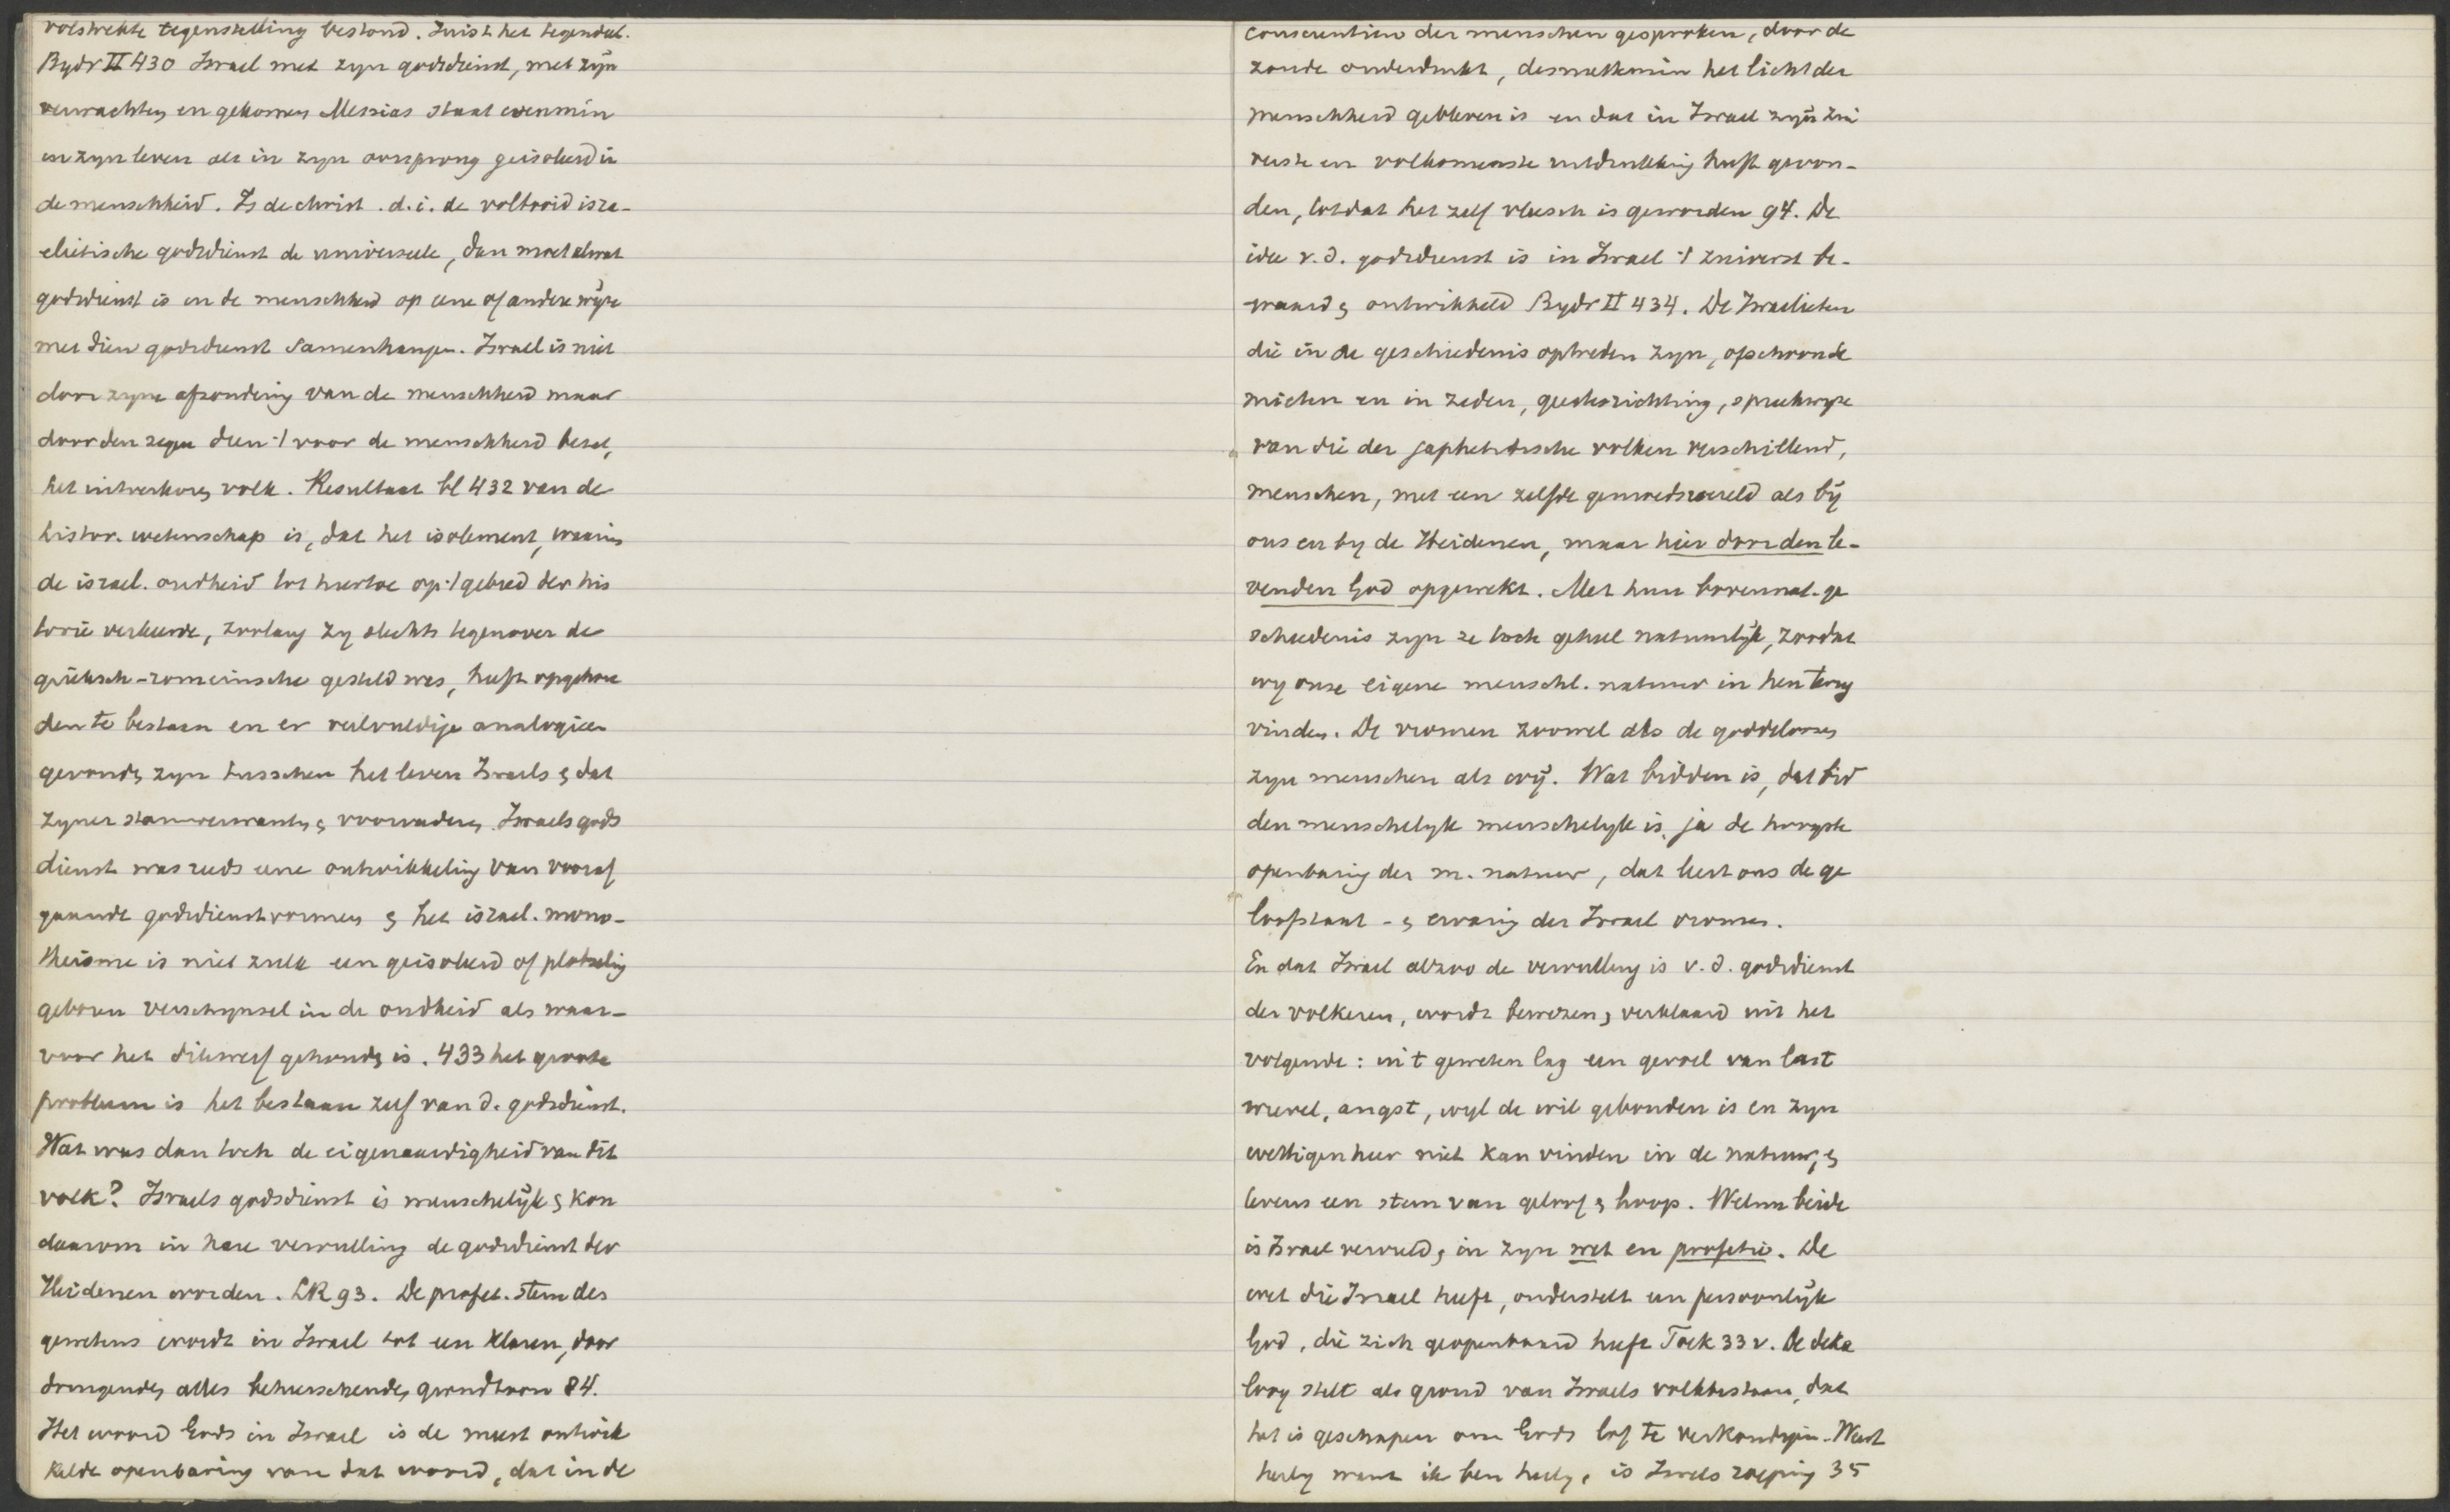 volstrekte tegenstelling bestond. Juist het tegendeel.
Bydr II 430 Israel met zyn godsdienst, met zyn
verwachten en gekomen Messias staat evenmin
in zyn leven als in zyn oorsprong geisoleerd in
de menschheid. Is de christ. d.i. de voltooid isra-
elietische godsdienst de universeele, dan moet alwat
godsdienst is in de menschheid op eene of andere wyze
met dien godsdienst samenhangen. Israel is niet
door zyne afzondering van de menschheid maar
door den zegen dien 't voor de menschheid bezat,
het uitverkoren volk. Resultaat bl 432 van de
histor. wetenschap is, dat het isolement, waarin
de israel. oudheid tot hiertoe op 't gebied der his
torie verkeerde, zoolang zy slechts tegenover de
grieksch-romeinsche gesteld was, heeft opgehou
den te bestaan en er veelvuldige analogieen
gevonden zyn tusschen het leven Israels & dat
zyner stamverwanten & voorvaderen. Israels gods
dienst was reeds eene ontwikkeling van vooraf
gaande godsdienstvormen & het israel. mono-
theisme is niet zulk een geisoleerd of plotseling
geboren verschynsel in de oudheid als waar-
voor het dikwerf gehouden is. 433 het groote
probleem is het bestaan zelf van d. godsdienst.
Wat was dan toch de eigenaardigheid van dit
volk? Israels godsdienst is menschelyk & kon
daarom in hare vervulling de godsdienst der
Heidenen worden. LR 93. De profet. stem des
gewetens wordt in Israel tot een klaren, door
dringenden alles beheerschenden grondtoon 84.
Het woord Gods in Israel is de meest ontwik
kelde openbaring van dat woord, dat in de
conscientien der menschen gesproken, door de
zonde onderdrukt, desniettemin het licht der
menschheid gebleven is en dat in Israel zyn zui
verste en volkomenste uitdrukking heeft gevon-
den, totdat het zelf vleesch is geworden 94. De
idee v.d. godsdienst is in Israel 't zuiverst be-
waard & ontwikkeld Bydr II 434. De Israelieten
die in de geschiedenis optreden zyn, ofschoon de
mieten en in zeden, geestesrichting, spreekwyze
van die der japhetitische volken verschillend,
menschen, met een zelfde gemoedswereld als by
ons en by de Heidenen, maar hier door den le-
venden God opgewekt. Met hun bovennat. ge
schiedenis zyn ze toch geheel natuurlyk, zoodat
wy onze eigene menschl. natuur in hen terug
vinden. De vromen zoowel als de goddeloozen
zyn menschen als wy. Wat bidden is, dat bid
den menschelyk menschelyk is, ja de hoogste
openbaring der m. natuur, dat leert ons de ge
loofstaal - & ervaring der Israel vromen.
En dat Israel alzoo de vervulling is v.d. godsdienst
der volkeren, wordt bewezen & verklaard uit het
volgende: in 't geweten lag een gevoel van last
wrevel, angst, wyl de wil gebonden is en zyn
wettigen heer niet kan vinden in de natuur, &
tevens een stem van geloof & hoop. Welnu beide
is Israel vervuld, in zyn wet en profetie. De
wet die Israel heeft, onderstelt een persoonlyk
God, die zich geopenbaard heeft Toek 33 v. De deka
loog stelt als grond van Israels volkbestaan, dat
het is geschapen om Gods lof te verkondigen. Weest
heilig want ik ben heilig, is Israels roeping 35